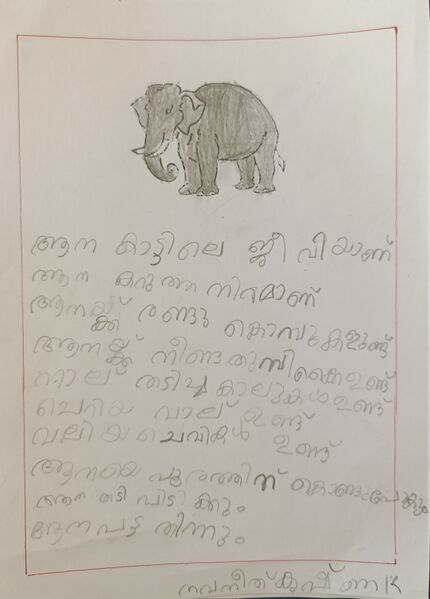 ആന കാട്ടിലെ ജീവിയാണ്
ആന കറുത്ത നിറമാണ്
ആനയ്ക്ക് രണ്ടു കൊമ്പുകളുണ്ട്
ആനയ്ക്ക് നീണ്ട തുമ്പികൈ ഉണ്ട്
നാല് തടിച്ച കാലുകൾ ഉണ്ട്
ചെറിയ വാല് ഉണ്ട്
വലിയ ചെവികൾ ഉണ്ട്
ആനയെ പൂരത്തിന് കൊണ്ടുപോകും
ആന തടി പിടിക്കും
ആന പട്ട തിന്നും
നവനീത് കൃഷ്ണ K